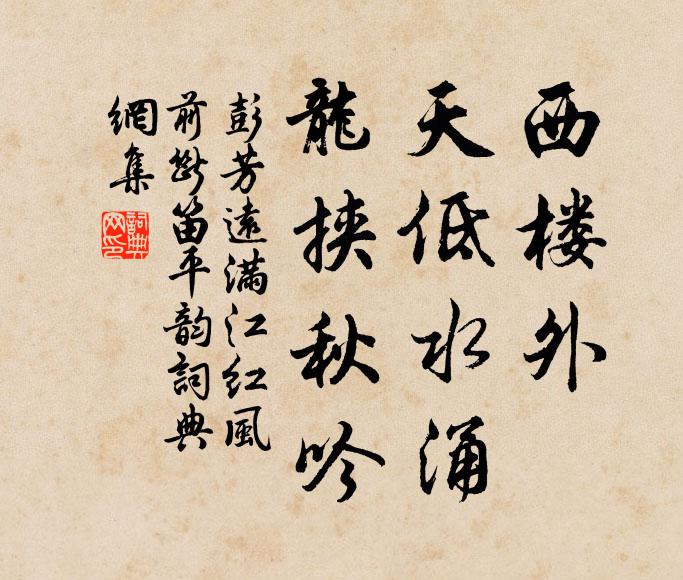 西楼外
天低水涌
龍挾秋吟
彭芳遠滿江紅風
前斷笛平韵詞典
網集
詞典
网印